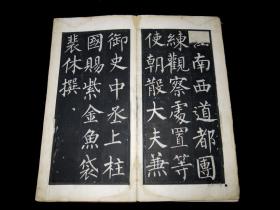 江南西道都團
練觀察處置等
使朝散大夫兼
御史中丞上柱
國賜紫金魚袋
裴休撰